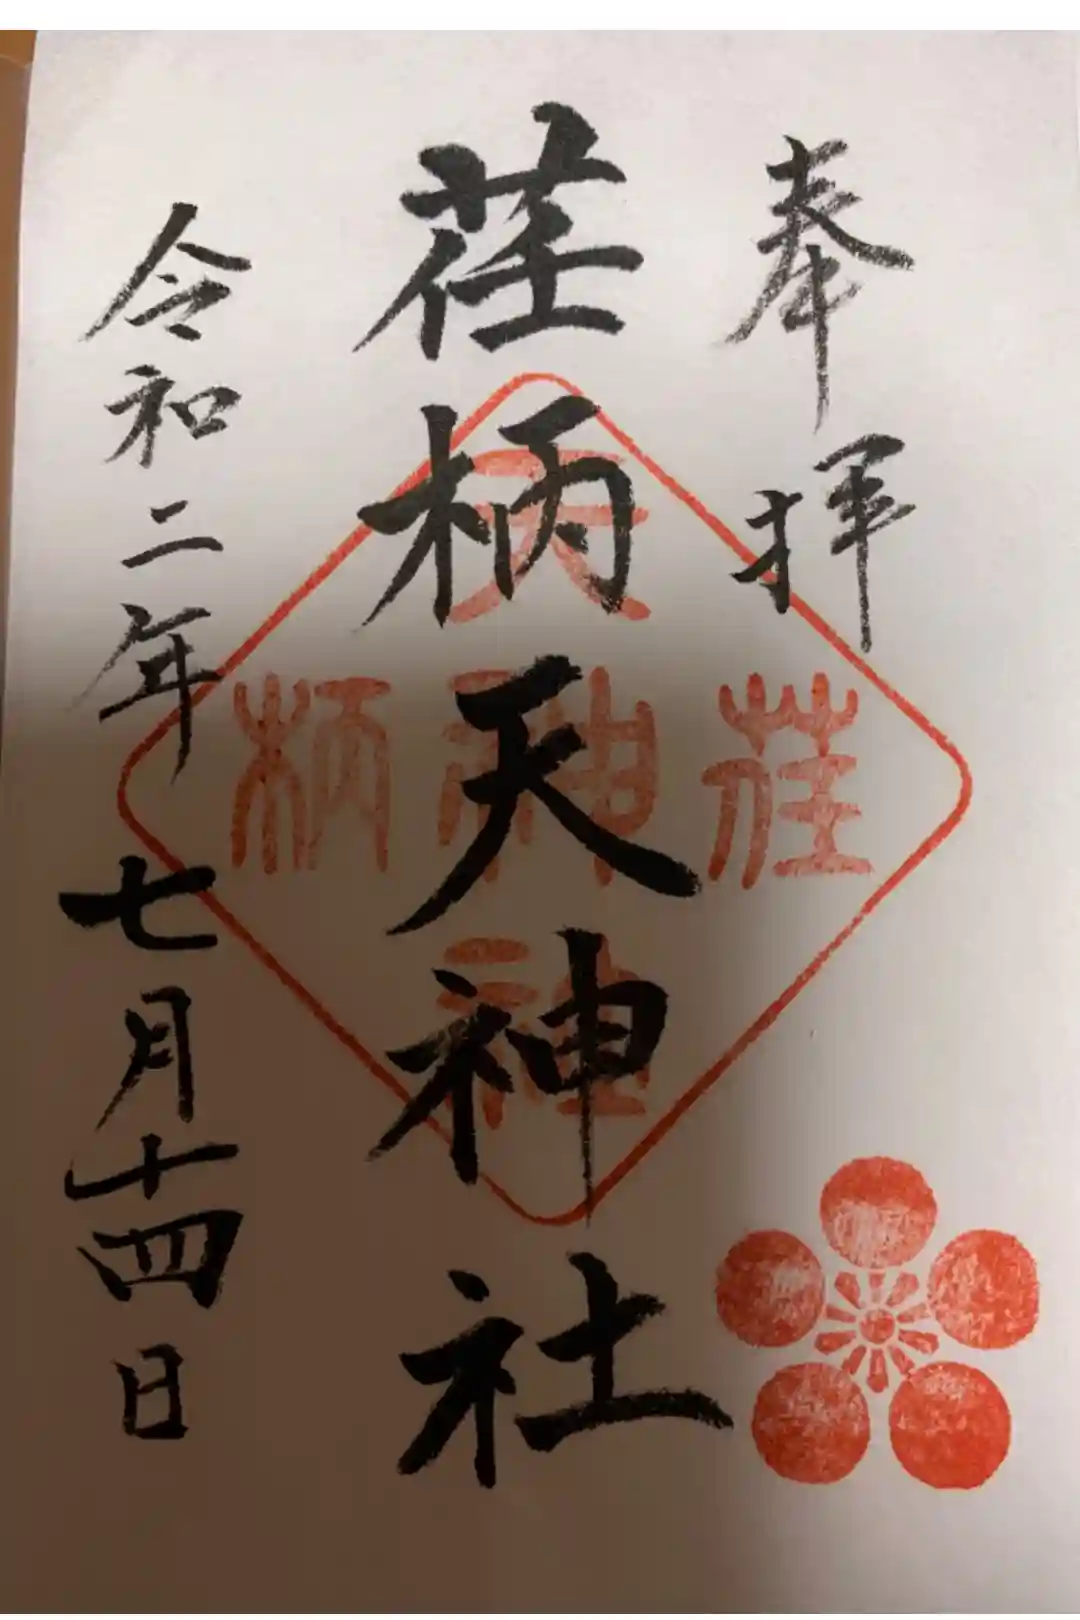 奉拝
荏柄天神社
令和二年七月十四日
天
荏神柄